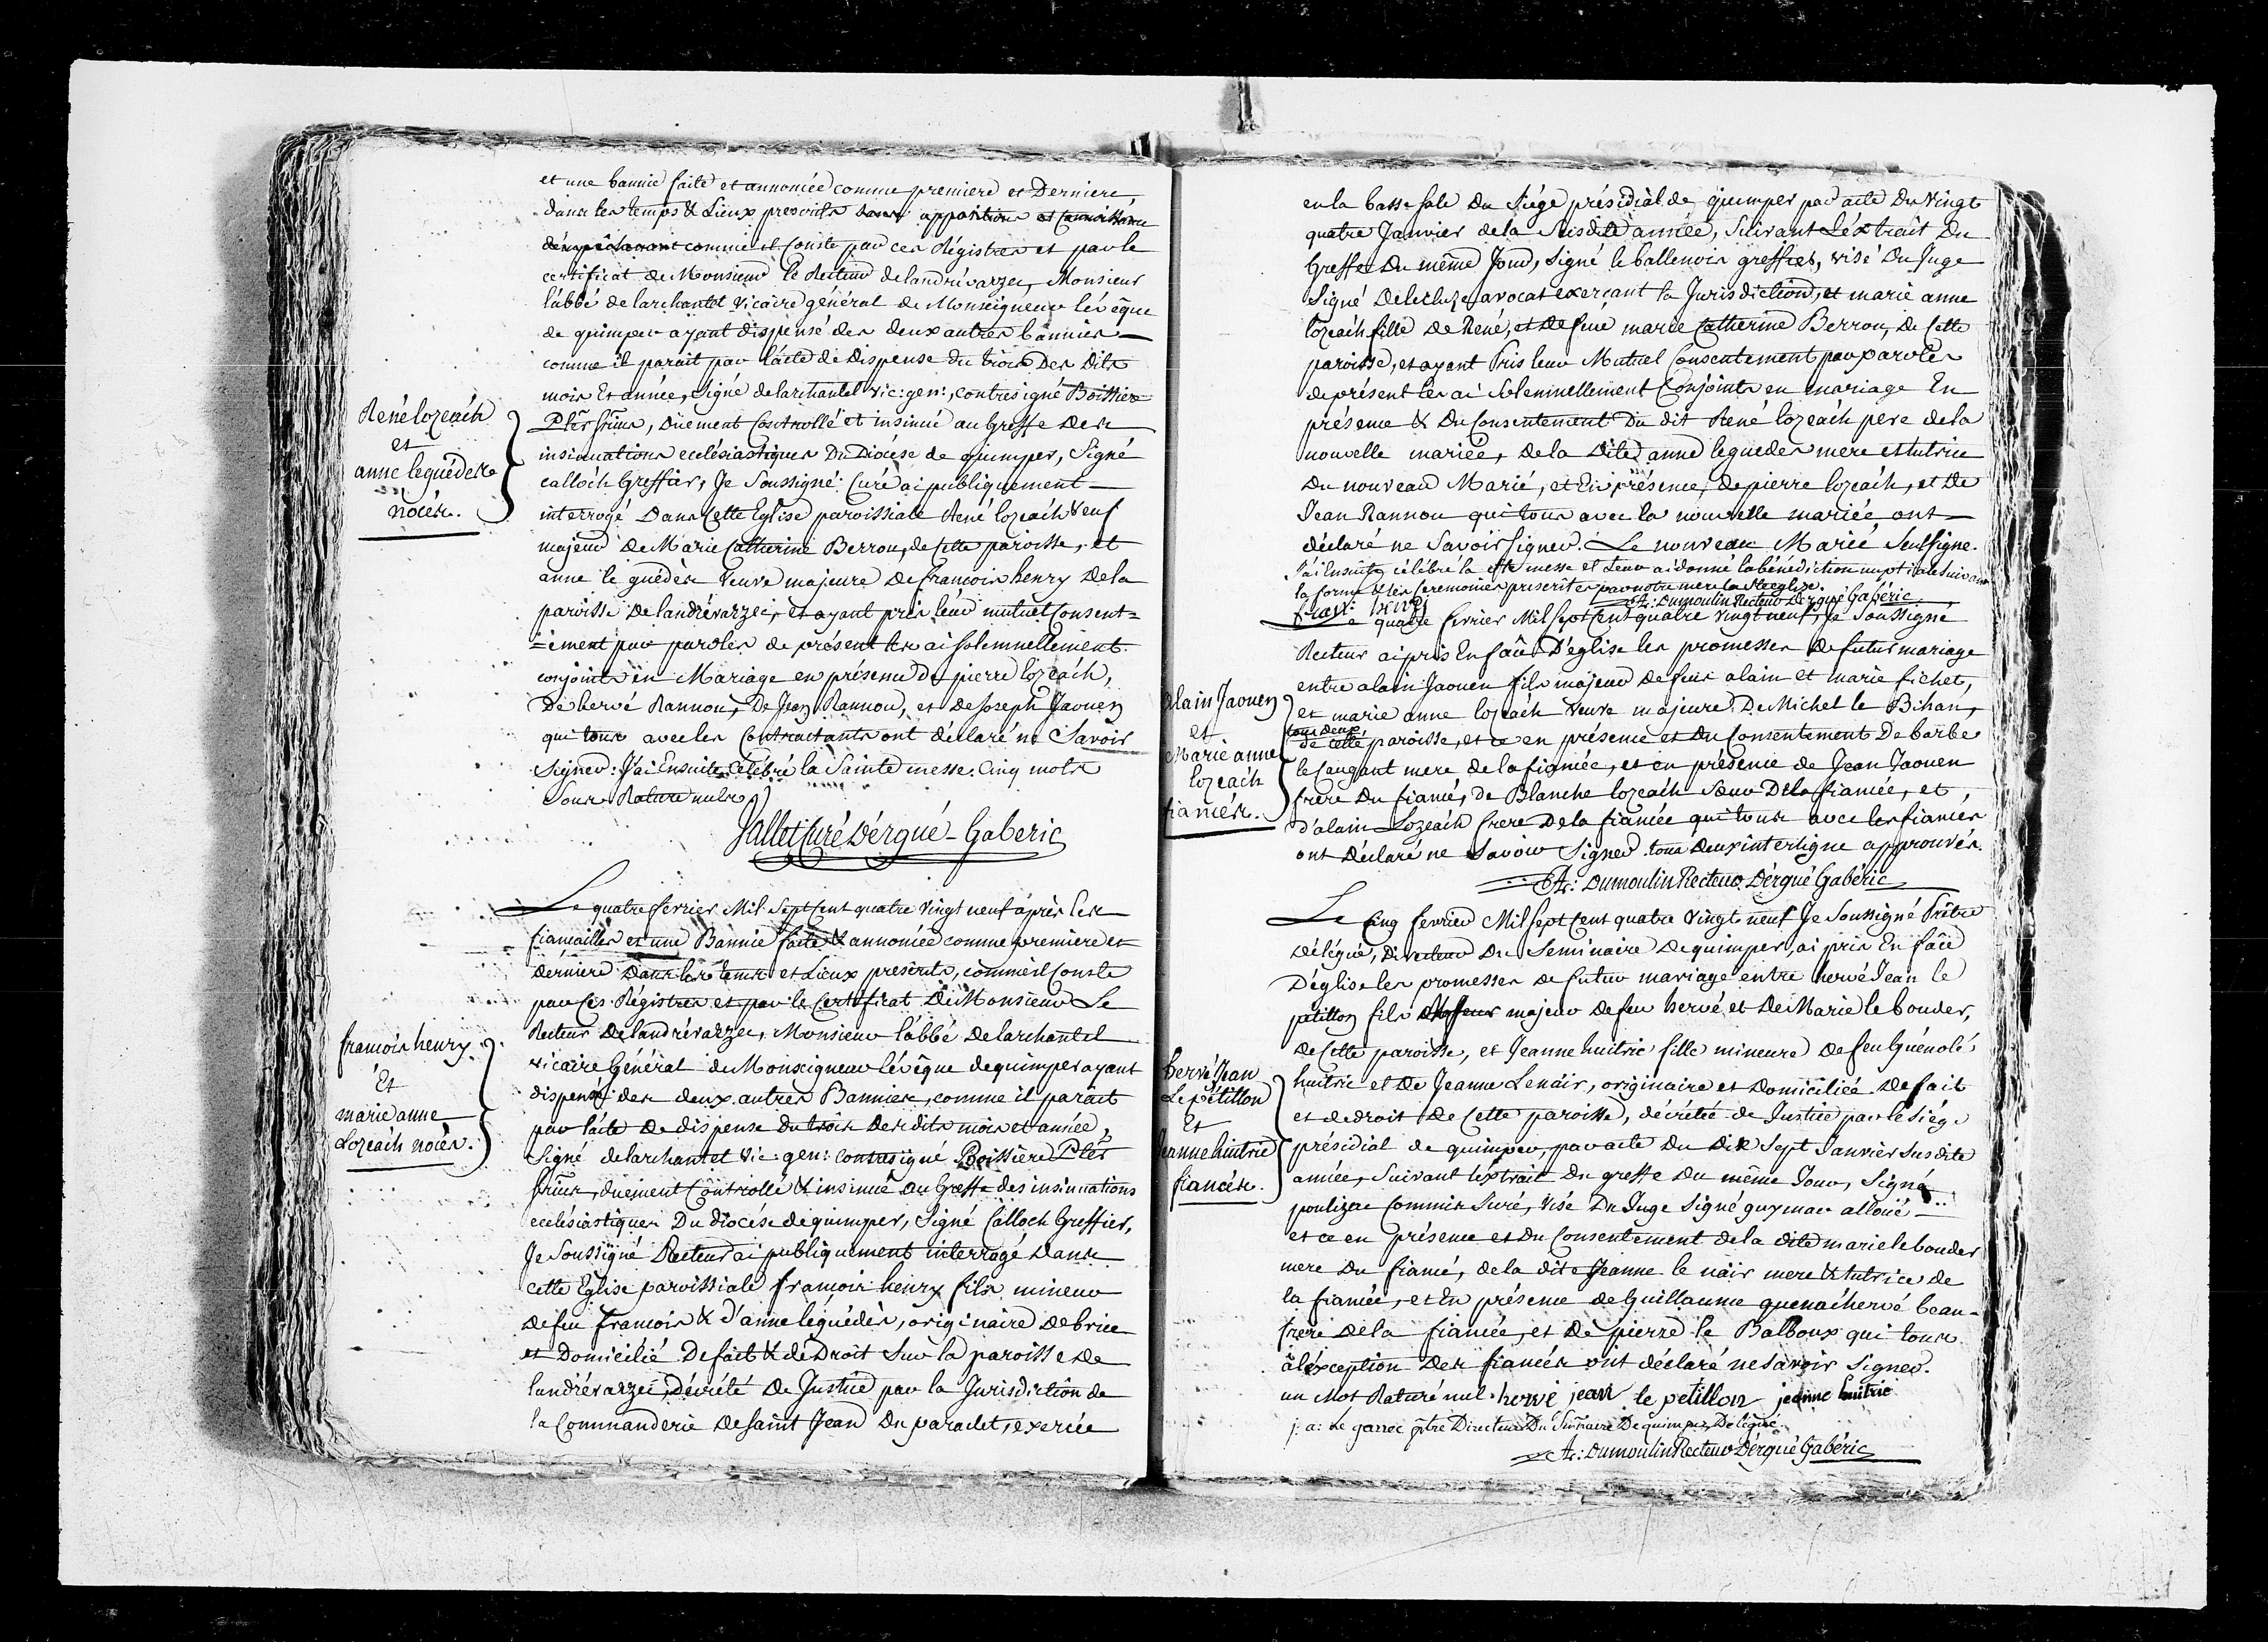 et une bannie faite et annoncée comme premiere et Derniere
dans les temps & Lieux prescrits sans oppositions et Connoissance
d'empêchement comme il Conste par ces Régistres et par le
certificat de Monsieur le Recteur de landrévarzec, Monsieur
l'abbé de larchantel Vicaire général de Monseigneur l'évêque
de quimper ayant dispensé des deux autres bannies
comme il parait par l'acte de Dispense du trois Des Dits
mois Et année, Signé delarchantel vic: gen:, contresigné Boissiere
René lozeách
et
anne leguédès
nocés.
Ptre, duement Controllé et insinué au Greffe Des
insinuations ecclésiastiques Du Diocése de quimper, Signé
calloch Greffier, Je Soussigné Curé ai publiquement
interrogé Dans Cette Eglise paroissiale René lozeách Veuf
majeur de Marie Catherine Berrou, de Cette paroisse, et
anne le guédès Veuve majeure De francois henry De la
paroisse De landrévarzec, et ayant pris leur mutuel Consent=
=ement par paroles de présent les ai solemnellement
conjoints en Mariage en présence De pierre lozeách,
De hervé Rannou, De Jean Rannou, et De Joseph Jaouen
qui tous avec les Contractants ont déclaré ne Savoir
Signer: J'ai Ensuite Célébré la Sainte messe. Cinq mots
Sous Rature nuls
Jallet Curé D'érgué-Gaberic
Le quatre fevrier Mil Sept Cent quatre Vingt neuf après les
fiancailles et une Bannie faite & annoncée comme premiere et
derniere Dans les tems et Lieux prescrits, comme il Conste
par Ces Régistres et par le Certificat De Monsieur Le
Recteur De landrévarzec, Monsieur l'abbé Delarchantel
Vicaire Général de Monseigneur l'évêque de quimper ayant
francois henry
Et
marie anne
Lozeách nocés.
dispensé des deux autres Bannies, comme il parait
par l'acte De dispense du trois Des dits mois et année,
Signé delarchantel Vic: gen: Contresigné Boissiere Ptre
duement Controllé & insinué au Greffe des insinuations
ecclésiastiques Du diocése de quimper, Signé Calloch Greffier,
Je Soussigné Recteur ai publiquement interrogé Dans
cette Eglise paroissiale francois henry fils mineur
de feu francois & d'anne leguédès, originaire De briec
et Domicilié De fait & de Droit Sur la paroisse De
landrévarzec, Décrété De Justice par la Jurisdiction de
la Commanderie De Saint Jean Du paraclet, exercée
en la basse sale Du Siége présidial de quimper par acte Du Vingt
quatre Janvier de la Susdite année, Suivant L'éxtrait Du
Greffe Du même Jour, Signé le ballenois greffier, visé Du Juge
Signé Delécluze avocat exerçant la Jurisdiction, et marie anne
lozeách fille De René, et De feue marie Catherine Berrou, De Cette
paroisse, et ayant Pris leur Mutuel Consentement par paroles
de présent les ai Solemnellement Conjoints en mariage En
présence & Du Consentement Du dit René lozeách pere de la
nouvelle mariée, de la Dite anne leguédes mere et tutrice
Du nouveau Marié, et En présence, de pierre lozeách, et De
Jean Rannou qui tous avec la nouvelle mariée ont
déclaré ne Savoir Signer. Le nouveau Marié Seul Signe.
J'ai Ensuite célébré la Ste messe et Leur ai donné la bénédiction nuptiale Suivant
la forme & les Ceremonies prescrites par notre mere la Ste eglise.
At: Dumoulin Recteur D'érgué Gabéric
Le quatre fevrier Mil Sept Cent quatre Vingt neuf, Je Soussigné
Recteur ai pris En face D'église les promesses De futur mariage
Alain Jaouen
et
Marie anne
lozeách
fiancés.
entre alain Jaouen fils majeur de feus alain et marie fichet,
et marie anne lozeách Veuve majeure De Michel le Bihan,
tous deux
de cette paroisse, et ce en présence et Du Consentement De barbe
le Caugant mere de la fiancée, et en présence de Jean Jaouen
frere Du fiancé, de Blanche lozeách Sœur De la fiancée, et
d'alain Lozeách frere De la fiancée qui tous avec les fiancés
ont Déclaré ne Savoir Signer. tous Deux interligne approuvés.
At: Dumoulin Recteur D'érgué Gabéric
Le Cinq fevrier Mil Sept Cent quatre Vingt neuf Je Soussigné Prêtre
délégué, Directeur Du Seminaire De quimper, ai pris En face
D'église les promesses de futur mariage entre hervé Jean le
pétillon fils majeur De feu hervé et De Marie le bouder,
de Cette paroisse, et Jeanne huitric fille mineure De feu Guénolé
hervé Jean
Le pétillon
Et
Jeanne huitric
fiancés.
huitric et De Jeanne Lenáir, originaire et Domiciliée De fait
et de droit De Cette paroisse, décrétée de Justice par le Siége
présidial de quimper, par acte Du Dix Sept Janvier Susdite
année, Suivant l'éxtrait Du greffe Du même Jour, Signé
poulizac Commis Juré, Visé Du Juge Signé guymar alloüé
et ce en présence et Du Consentement de la dite marie le bouder
mere Du fiancé, de la dite Jeanne le náir mere & tutrice de
la fiancée, et En présence de Guillaume quenáchervé beau-
frere De la fiancée, et De pierre le Balboux qui tous
à l'éxception Des fiancés ont déclaré ne Savoir Signer.
un Mot Raturé nul. hervé jean le petillon jeanne huitric
j: a: Le garrec ptre Directeur Du Séminaire De quimper, Délégué
At: Dumoulin Recteur D'érgué Gabéric